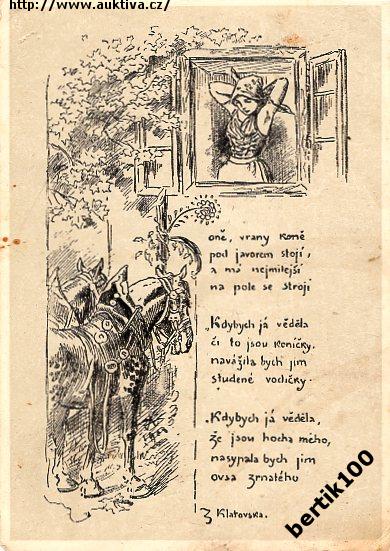 http://www.auktiva.cz/
oně, vrany koně
pod javorem stojí,
a má nejmilejší
na pole se strojí
„Kdybych já věděla
čí to jsou koníčky,
navážila bych jim
studené vodičky.
„Kdybych já věděla,
že jsou hocha mého,
nasypala bych jim
ovsa zrnatého
Z Klatovska.
bertik100